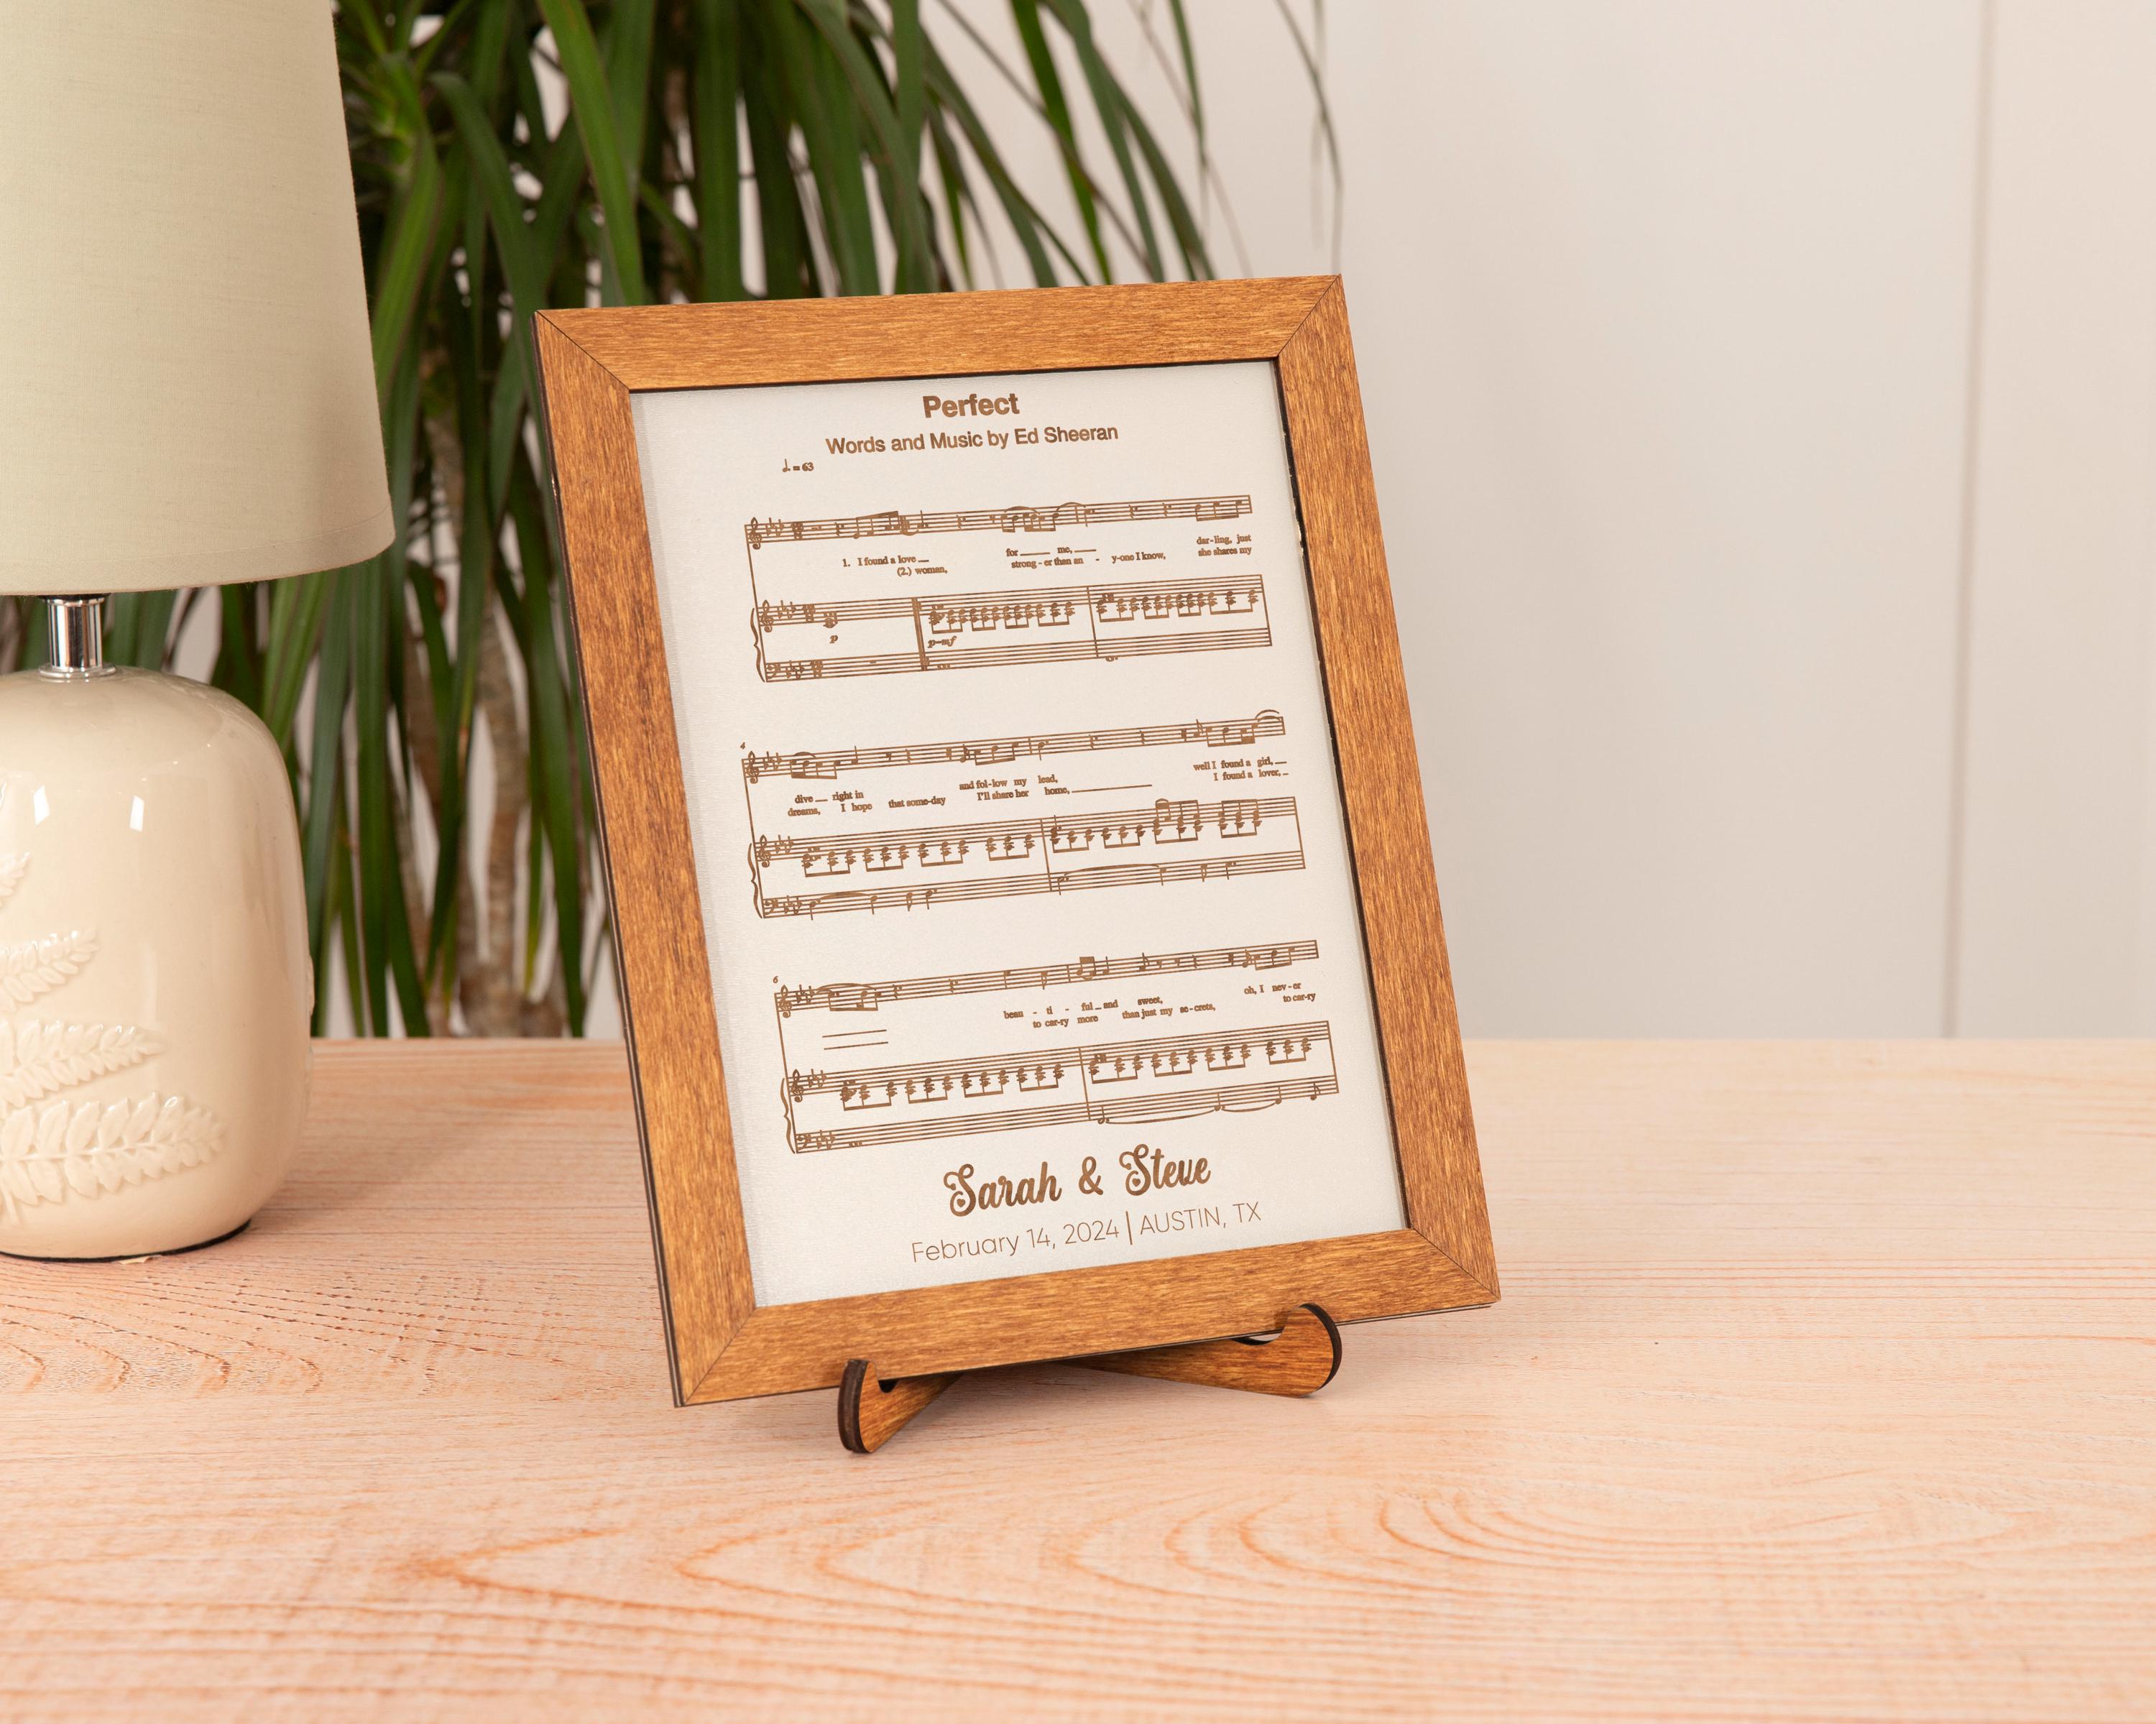 Perfect
Words and Music by Ed Sheeran
= 63
1. I found a love __ for ____ me, ____ dar - ling, just
(2.) woman, strong - er than an - y-one I know, she shares my
p
p-mf
4
dive __ right in and fol-low my lead, well I found a girl, __
dreams, I hope that some-day I'll share her home, ____ I found a lover, _
6
beau - ti - ful _ and sweet, oh, I nev - er
to car-ry more than just my se - crets, to car-ry
Sarah & Steve
February 14, 2024 | AUSTIN, TX